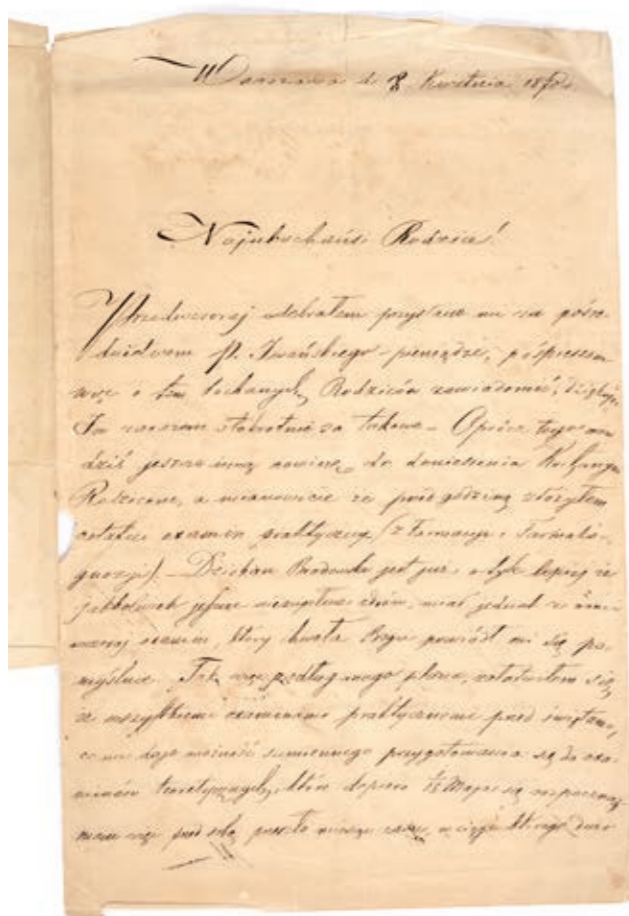 Warszawa d. 8 Kwietnia 187
Najukochańsi Rodzice!
Przedwczoraj odebrałem przysłane mi za pośre-
dnictwem p. Iwańskiego pieniądze, pośpieszam
więc o tem kochanych Rodziców zawiadomić, dziękując
Im zarazem stokrotnie za takowe – Oprócz tego mam
dziś jeszcze inną nowinę do doniesienia Kochanym
Rodzicom, a mianowicie że przed godziną złożyłem
ostatni examin praktyczny (z Farmacyi i Farmako-
gnozyi). – Dziekan jest już o tyle lepiej że
jakkolwiek jeszcze niezupełnie zdrów, miał jednak ze mną
examin, który chwała Bogu powiódł mi się po-
myślnie. Tak więc podług mego planu, załatwiłem się
ze wszystkiemi examinami praktycznemi przed świętami,
co mi daje możność sumiennego przygotowania się do exa-
minów teoretycznych, które dopiero 15 Maja się rozpoczną
mam więc pod sobą przeszło miesiąc czasu, w ciągu którego dużo